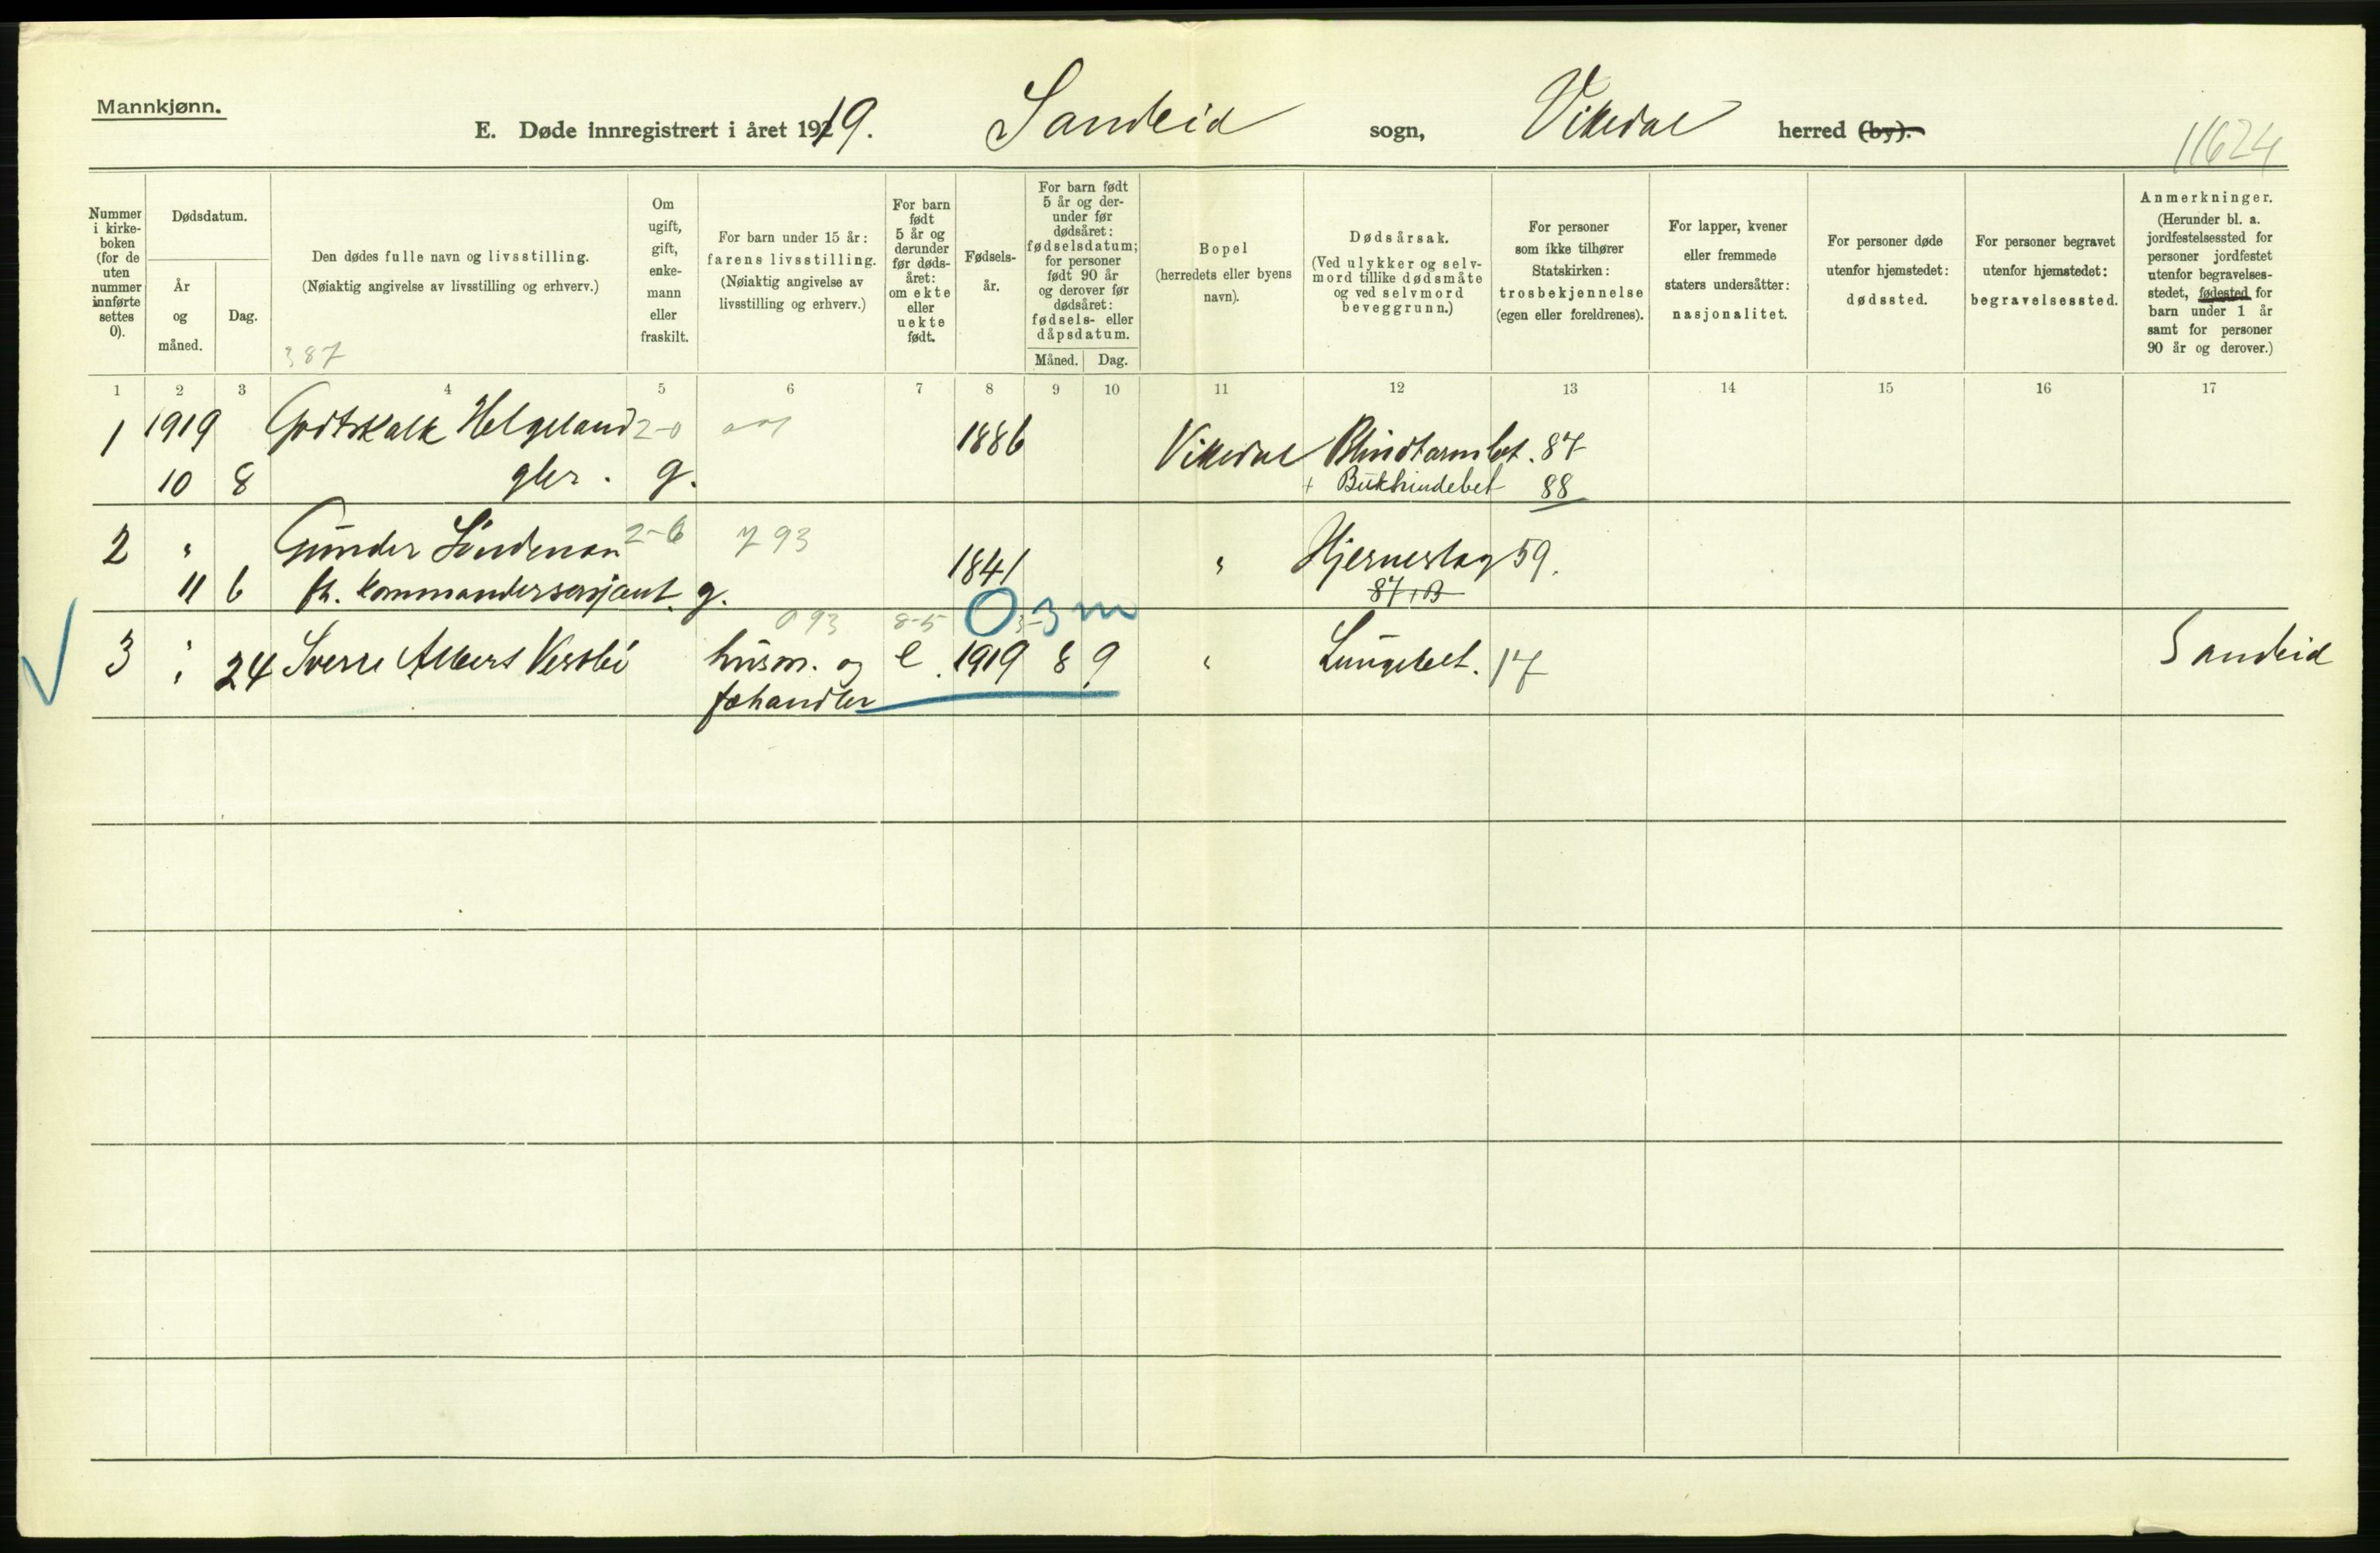 Mannkjønn.
E. Døde innregistrert i året 1919. Sandeid sogn, Vikedal herred (by).
11624
Nummer i kirke-boken (for de uten nummer innførte settes 0).
Dødsdatum.
År og måned.
Dag.
Den dødes fulle navn og livsstilling.
(Nøiaktig angivelse av livsstilling og erhverv.)
387
Om ugift, gift, enke-mann eller fraskilt.
For barn under 15 år: farens livsstilling.
(Nøiaktig angivelse av livsstilling og erhverv.)
For barn født 5 år og derunder før døds-året: om ekte eller uekte født.
Fødsels-år.
For barn født 5 år og der-under før dødsåret: fødselsdatum; for personer født 90 år og derover før dødsåret: fødsels- eller dåpsdatum.
Måned. Dag.
Bopel
(herredets eller byens navn).
Dødsårsak.
(Ved ulykker og selv-mord tillike dødsmåte og ved selvmord beveggrunn.)
For personer som ikke tilhører Statskirken: trosbekjennelse (egen eller foreldrenes).
For lapper, kvener eller fremmede staters undersåtter: nasjonalitet.
For personer døde utenfor hjemstedet: dødssted.
For personer begravet utenfor hjemstedet: begravelsessted.
Anmerkninger.
(Herunder bl. a. jordfestelsessted for personer jordfestet utenfor begravelses-stedet, fødested for barn under 1 år samt for personer 90 år og derover.)
1 2 3 4 5 6 7 8 9 10 11 12 13 14 15 16 17
1 1919 Godtskalk Helgeland 2-0 1886 Vikedal Blindtarmbet. 87
10 8 gbr. g. + Bukhindebet 88
2 " Gunder 2-6 793 1841 " Hjerneslag 59.
11 6 fh. kommandersersjant. g. 87+B
093 8-5 0 3-3 m
3 " 24 Sverre Albert husm. og e. 1919 8 9 " Lungebet. 17 Sandeid
fehandler